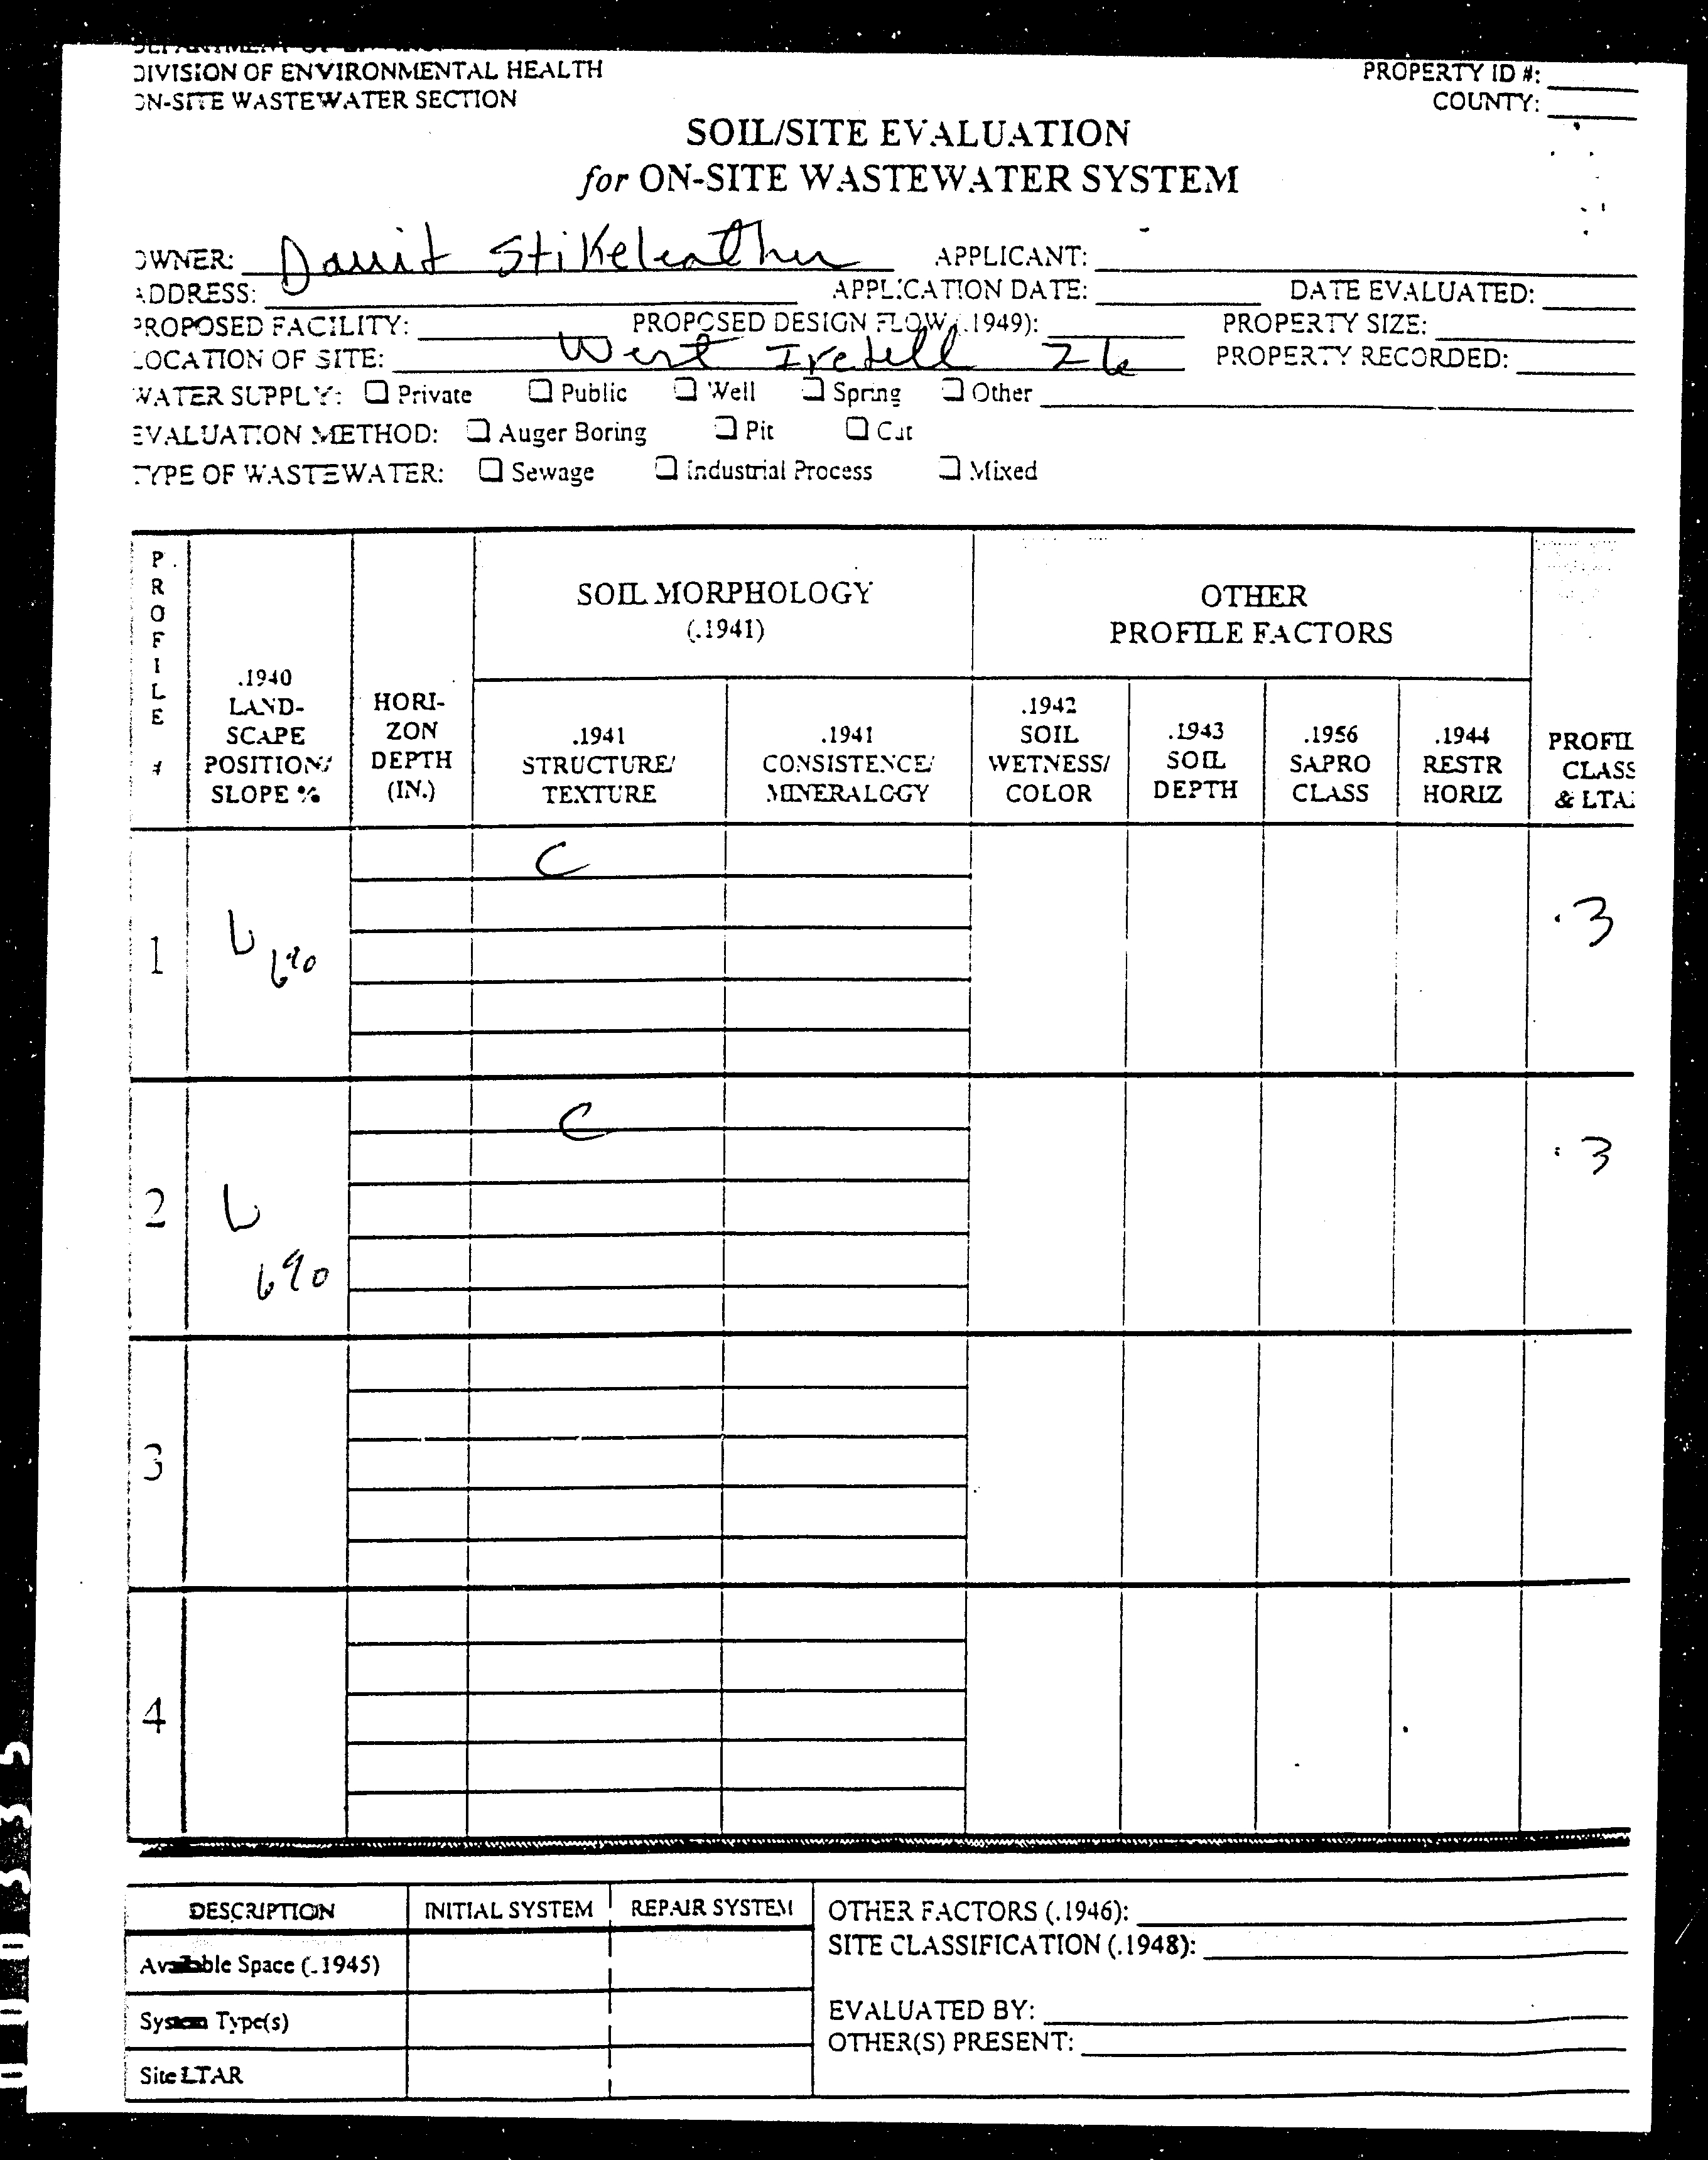 DIVISION OF ENVIRONMENTAL HEALTH
ON-SITE WASTEWATER SECTION
PROPERTY ID #:
COUNTY:
SOIL/SITE EVALUATION
for ON-SITE WASTEWATER SYSTEM
OWNER: Stikeleather APPLICANT:
ADDRESS: APPLICATION DATE: DATE EVALUATED:
PROPOSED FACILITY: PROPOSED DESIGN FLOW (.1949): PROPERTY SIZE:
LOCATION OF SITE: West Iredell 26 PROPERTY RECORDED:
WATER SUPPLY: Private Public Well Spring Other
EVALUATION METHOD: Auger Boring Pit Cut
TYPE OF WASTEWATER: Sewage Industrial Process Mixed
PROFILE #
.1940 LAND-SCAPE POSITION/ SLOPE %
HORI-ZON DEPTH (IN.)
SOIL MORPHOLOGY
(.1941)
.1941 STRUCTURE/ TEXTURE
.1941 CONSISTENCE/ MINERALOGY
OTHER
PROFILE FACTORS
.1942 SOIL WETNESS/ COLOR
.1943 SOIL DEPTH
.1956 SAPRO CLASS
.1944 RESTR HORIZ
PROFIL CLASS & LTA
1 L 6% C .3
2 L 6% C .3
3
4
DESCRIPTION INITIAL SYSTEM REPAIR SYSTEM
Available Space (.1945)
System Type(s)
Site LTAR
OTHER FACTORS (.1946):
SITE CLASSIFICATION (.1948):
EVALUATED BY:
OTHER(S) PRESENT: